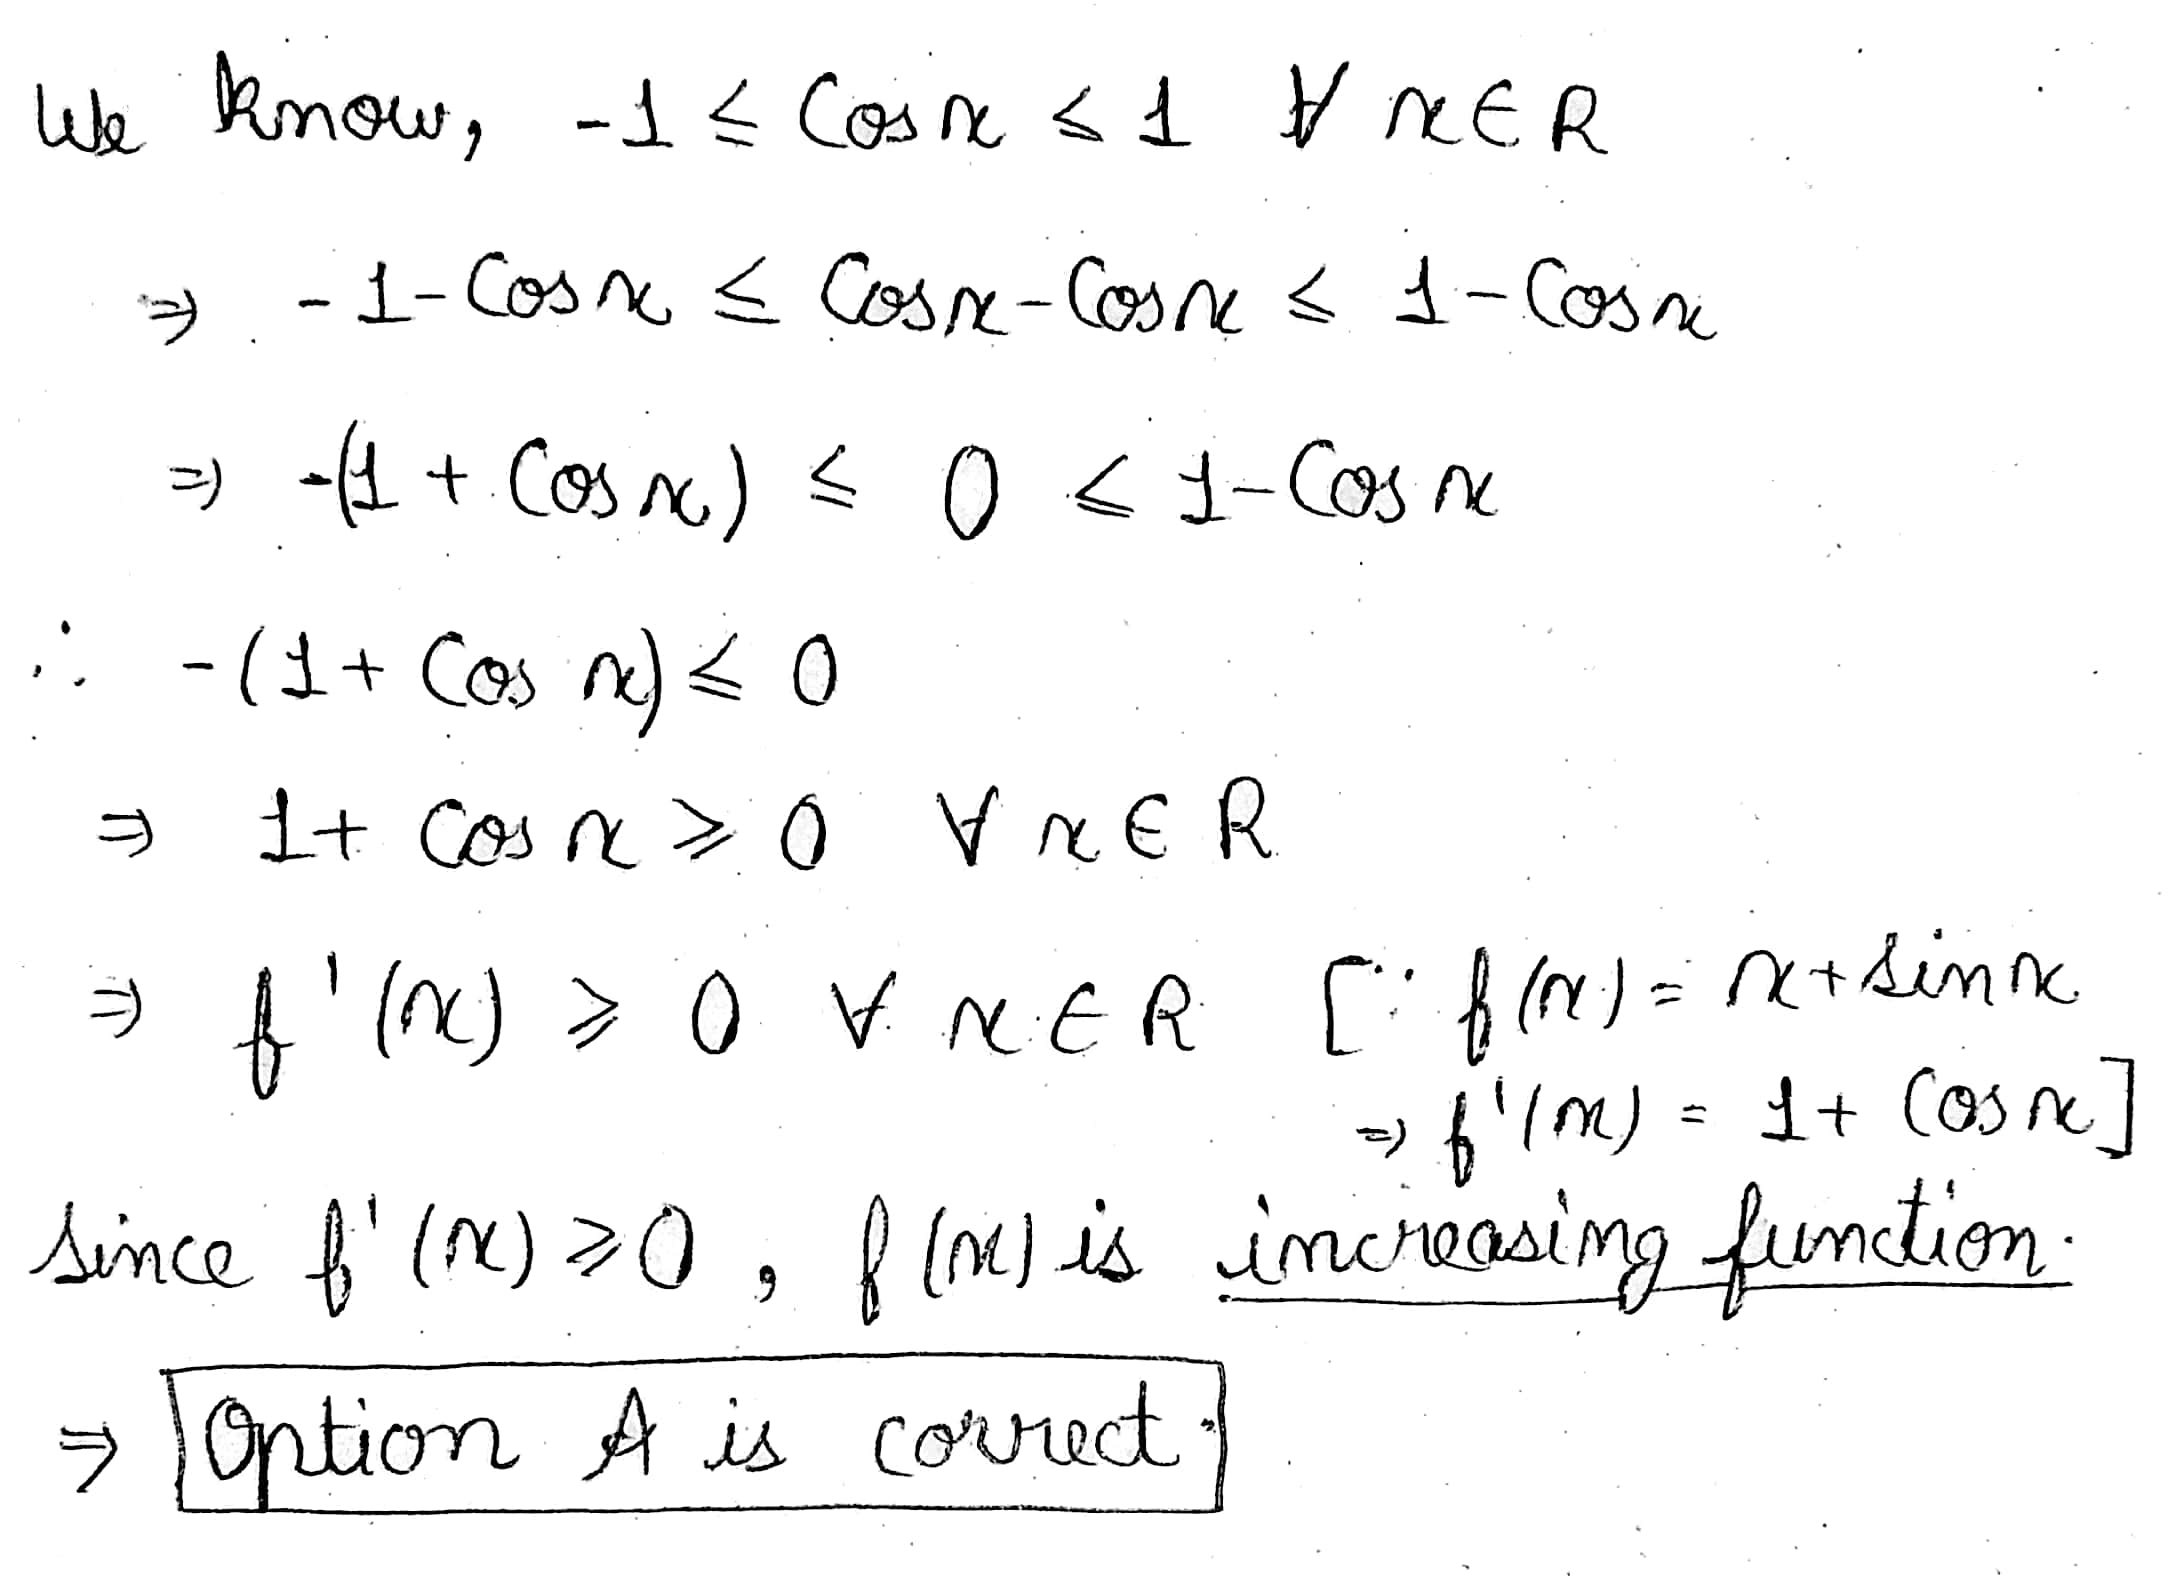 We know, -1 ≤ Cos x ≤ 1 ∀ x ∈ R
⇒ -1 - Cos x ≤ Cos x - Cos x ≤ 1 - Cos x
⇒ -(1 + Cos x) ≤ 0 ≤ 1 - Cos x
∴ -(1 + Cos x) ≤ 0
⇒ 1 + Cos x ≥ 0 ∀ x ∈ R
⇒ f'(x) ≥ 0 ∀ x ∈ R [∵ f(x) = x + sin x
⇒ f'(x) = 1 + Cos x]
since f'(x) ≥ 0, f(x) is increasing function.
⇒ Option A is correct.